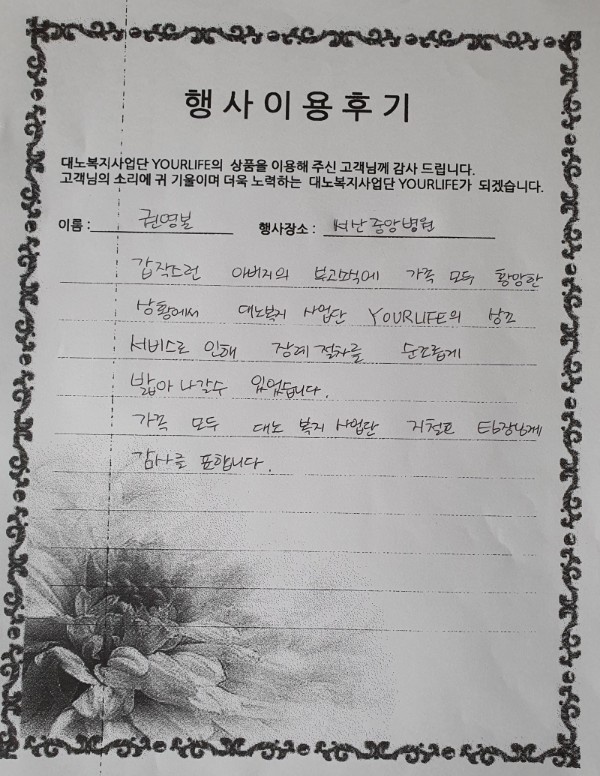 행사이용후기
대노복지사업단 YOURLIFE의 상품을 이용해 주신 고객님께 감사 드립니다.
고객님의 소리에 귀 기울이며 더욱 노력하는 대노복지사업단 YOURLIFE가 되겠습니다.
이름 : 권영보 행사장소 : 서산중앙병원
갑작스런 아버지의 부고소식에 가족 모두 황망한
상황에서 대노복지 사업단 YOURLIFE의 상조
서비스로 인해 장례 절차를 순조롭게
밟아 나갈수 있었습니다.
가족 모두 대노 복지 사업단 팀장님께
감사를 표합니다.